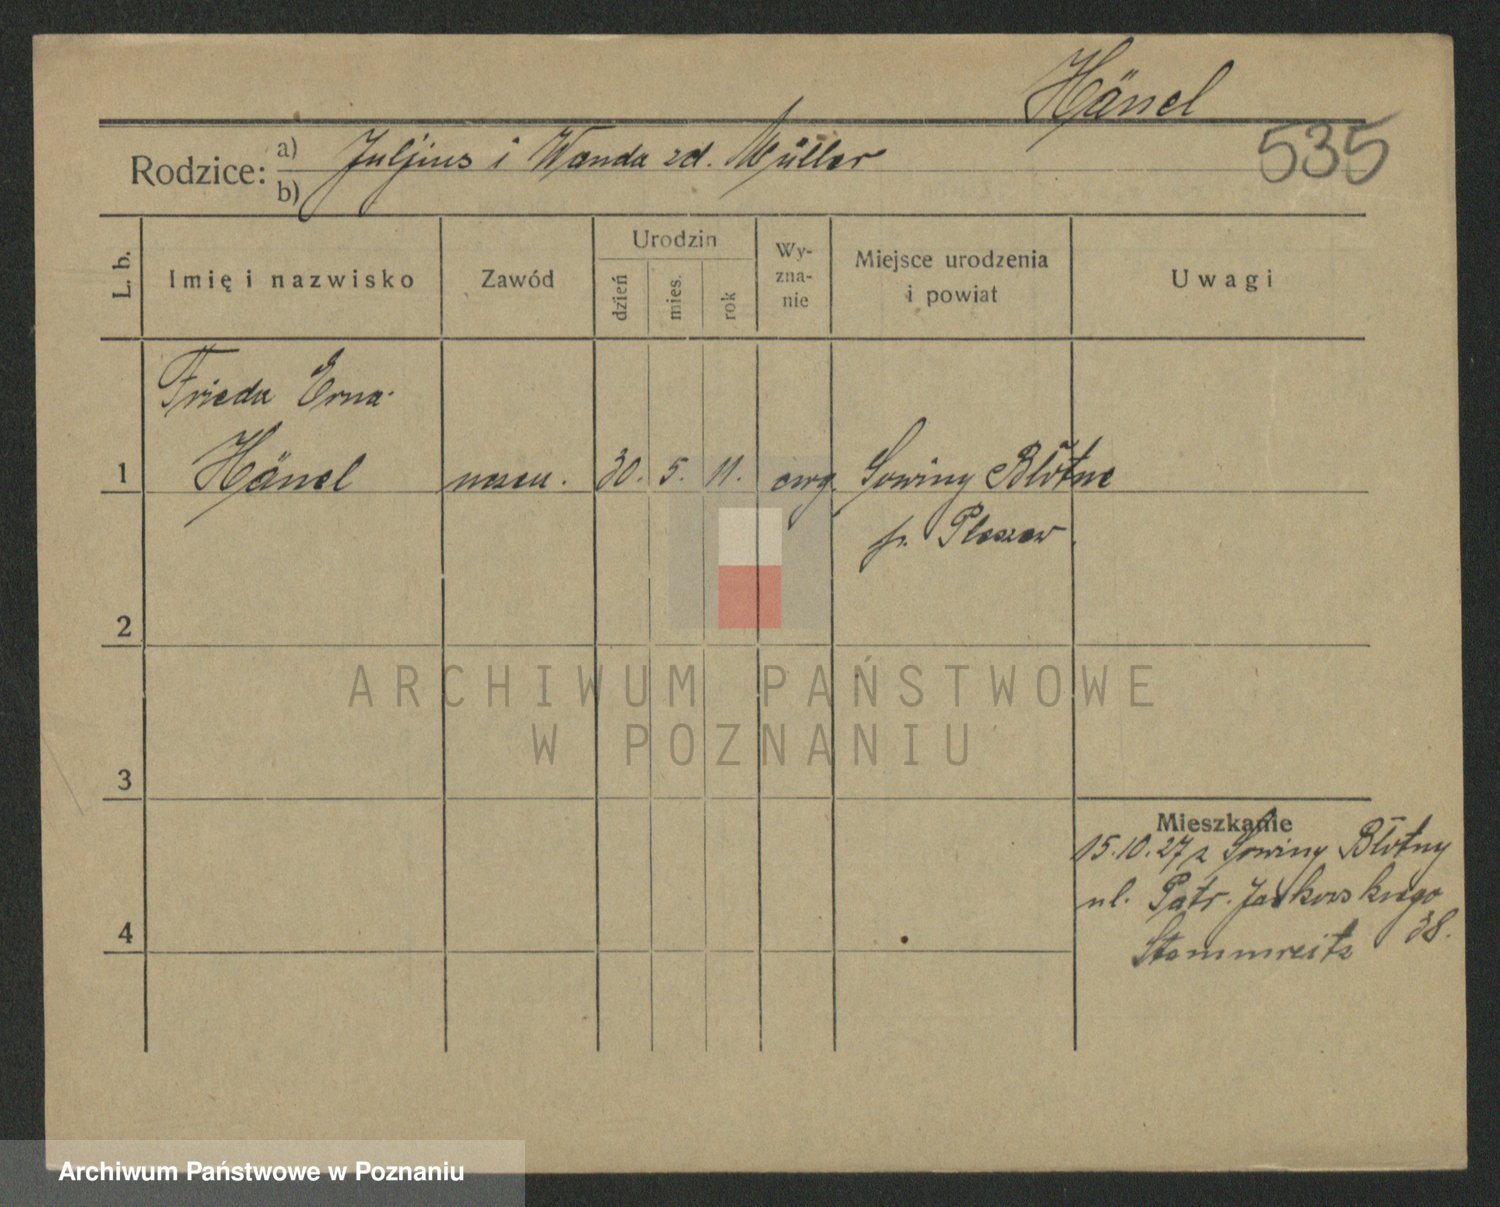 Hänel
535
Rodzice: a) Juljius i Wanda zd. Müller
b)
L. b.
Imię i nazwisko
Zawód
Urodzin
dzień
mies.
rok
Wy-
zna-
nie
Miejsce urodzenia
i powiat
Uwagi
Frieda Erna
1 Hänel 30. 5. 11. ewg. Sowiny Błotne
p. Pleszew.
2
ARCHIWUM PAŃSTWOWE
W POZNANIU
3
Mieszkanie
15.10.27 z Sowiny Błotny
ul. Patr. Jackowskiego
38.
4
Archiwum Państwowe w Poznaniu